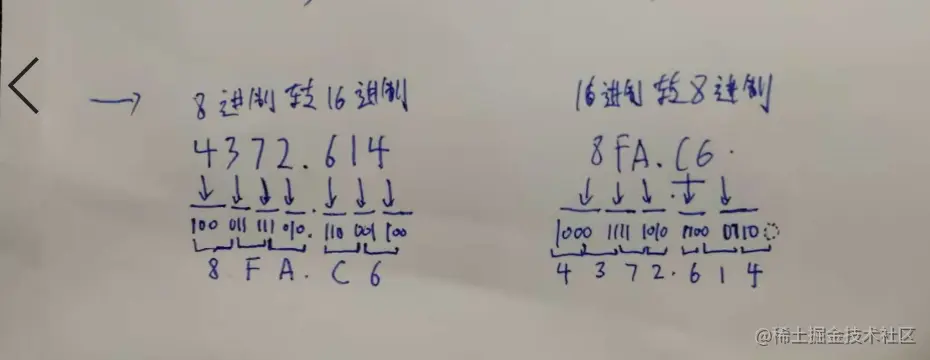 8进制转16进制
4372.614
100 011 111 010. 110 001 100
8 F A. C 6
16进制转8进制
8FA.C6.
1000 1111 1010 1100 0110
4 3 7 2. 6 1 4
@稀土掘金技术社区